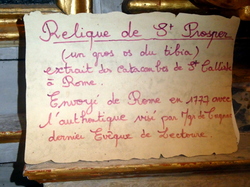 Relique de St Prosper
(un gros os du tibia)
extrait des Catacombes de St Calliste
à Rome.
Envoyé de Rome en 1777 avec
l'authentique visé par Mgr de
dernier Evêque de Lectoure.